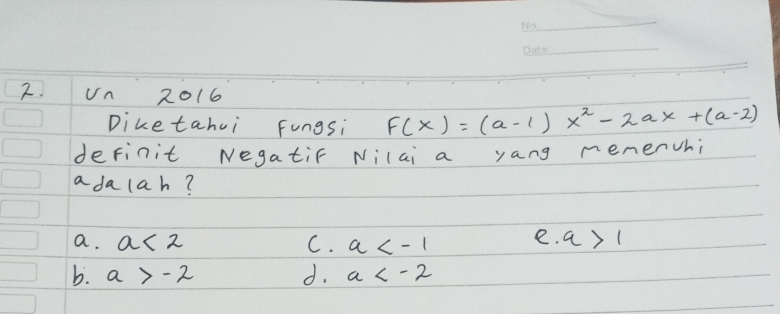 No.
Date:
2. Un 2016
Diketahui Fungsi F(x) = (a-1) x² - 2ax + (a-2)
definit Negatif Nilai a yang memenuhi
adalah?
a. a < 2 C. a < -1 e. a > 1
b. a > -2 d. a < -2